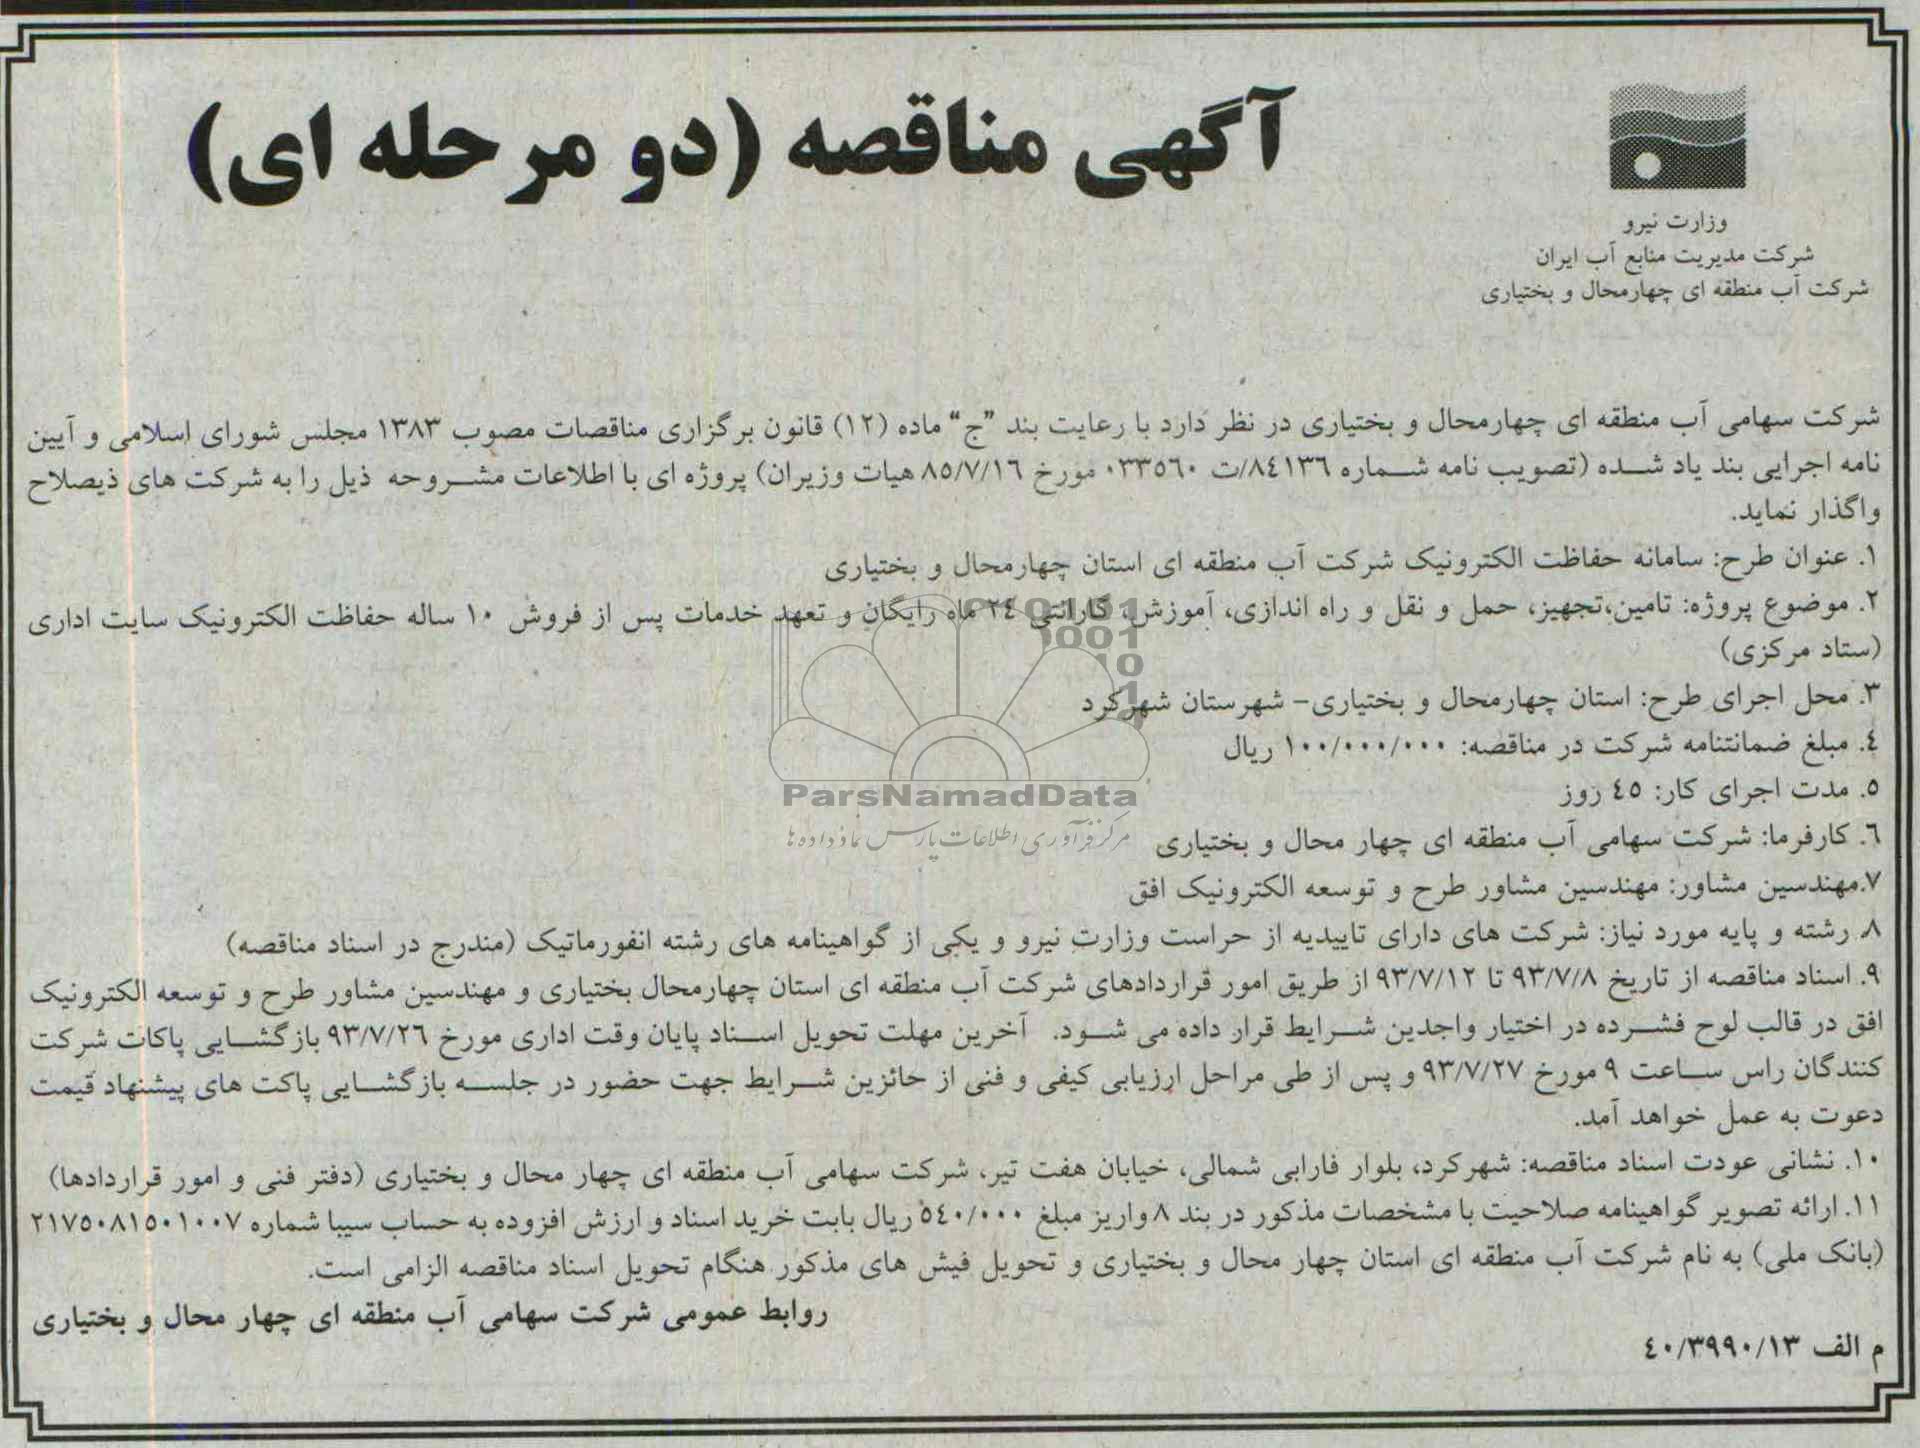 آگهی مناقصه (دو مرحله ای)
وزارت نیرو
شرکت مدیریت منابع آب ایران
شرکت آب منطقه ای چهارمحال و بختیاری
شرکت سهامی آب منطقه ای چهارمحال و بختیاری در نظر دارد با رعایت بند "ج" ماده (۱۲) قانون برگزاری مناقصات مصوب ۱۳۸۳ مجلس شورای اسلامی و آیین
نامه اجرایی بند یاد شده (تصویب نامه شماره ۸۴۱۳۶/ت ۰۳۳۵۶۰ مورخ ۸۵/۷/۱۶ هیات وزیران) پروژه ای با اطلاعات مشروحه ذیل را به شرکت های ذیصلاح
واگذار نماید.
۱. عنوان طرح: سامانه حفاظت الکترونیک شرکت آب منطقه ای استان چهارمحال و بختیاری
۲. موضوع پروژه: تامین،تجهیز، حمل و نقل و راه اندازی، آموزش، گارانتی ۲۴ ماه رایگان و تعهد خدمات پس از فروش ۱۰ ساله حفاظت الکترونیک سایت اداری
(ستاد مرکزی)
۳. محل اجرای طرح: استان چهارمحال و بختیاری- شهرستان شهرکرد
۴. مبلغ ضمانتنامه شرکت در مناقصه: ۱۰۰/۰۰۰/۰۰۰ ریال
۵. مدت اجرای کار: ۴۵ روز
۶. کارفرما: شرکت سهامی آب منطقه ای چهار محال و بختیاری
۷.مهندسین مشاور: مهندسین مشاور طرح و توسعه الکترونیک افق
۸. رشته و پایه مورد نیاز: شرکت های دارای تاییدیه از حراست وزارت نیرو و یکی از گواهینامه های رشته انفورماتیک (مندرج در اسناد مناقصه)
۹. اسناد مناقصه از تاریخ ۹۳/۷/۸ تا ۹۳/۷/۱۲ از طریق امور قراردادهای شرکت آب منطقه ای استان چهارمحال بختیاری و مهندسین مشاور طرح و توسعه الکترونیک
افق در قالب لوح فشرده در اختیار واجدین شرایط قرار داده می شود. آخرین مهلت تحویل اسناد پایان وقت اداری مورخ ۹۳/۷/۲۶ بازگشایی پاکات شرکت
کنندگان راس ساعت ۹ مورخ ۹۳/۷/۲۷ و پس از طی مراحل ارزیابی کیفی و فنی از حائزین شرایط جهت حضور در جلسه بازگشایی پاکت های پیشنهاد قیمت
دعوت به عمل خواهد آمد.
۱۰. نشانی عودت اسناد مناقصه: شهرکرد، بلوار فارابی شمالی، خیابان هفت تیر، شرکت سهامی آب منطقه ای چهار محال و بختیاری (دفتر فنی و امور قراردادها)
۱۱. ارائه تصویر گواهینامه صلاحیت با مشخصات مذکور در بند ۸ واریز مبلغ ۵۴۰/۰۰۰ ریال بابت خرید اسناد و ارزش افزوده به حساب سیبا شماره ۲۱۷۵۰۸۱۵۰۱۰۰۷
(بانک ملی) به نام شرکت آب منطقه ای استان چهار محال و بختیاری و تحویل فیش های مذکور هنگام تحویل اسناد مناقصه الزامی است.
روابط عمومی شرکت سهامی آب منطقه ای چهار محال و بختیاری
م الف ۴۰/۳۹۹۰/۱۳
ParsNamadData
مرکز فرآوری اطلاعات پارس نماد داده ها